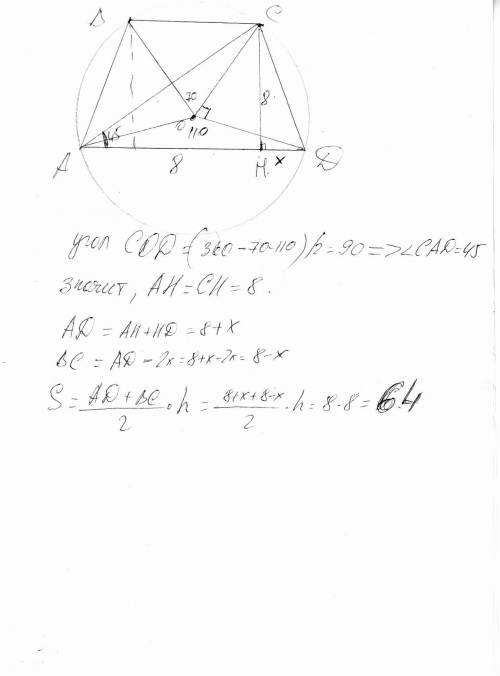 B C
70
O
45
110
8
A 8 H x D
угол COD=(360-70-110)/2=90=>∠CAD=45
значит, AH=CH=8.
AD=AH+HD=8+x
BC=AD-2x=8+x-2x=8-x
S=(AD+BC)/2·h=(8+x+8-x)/2·h=8·8=64